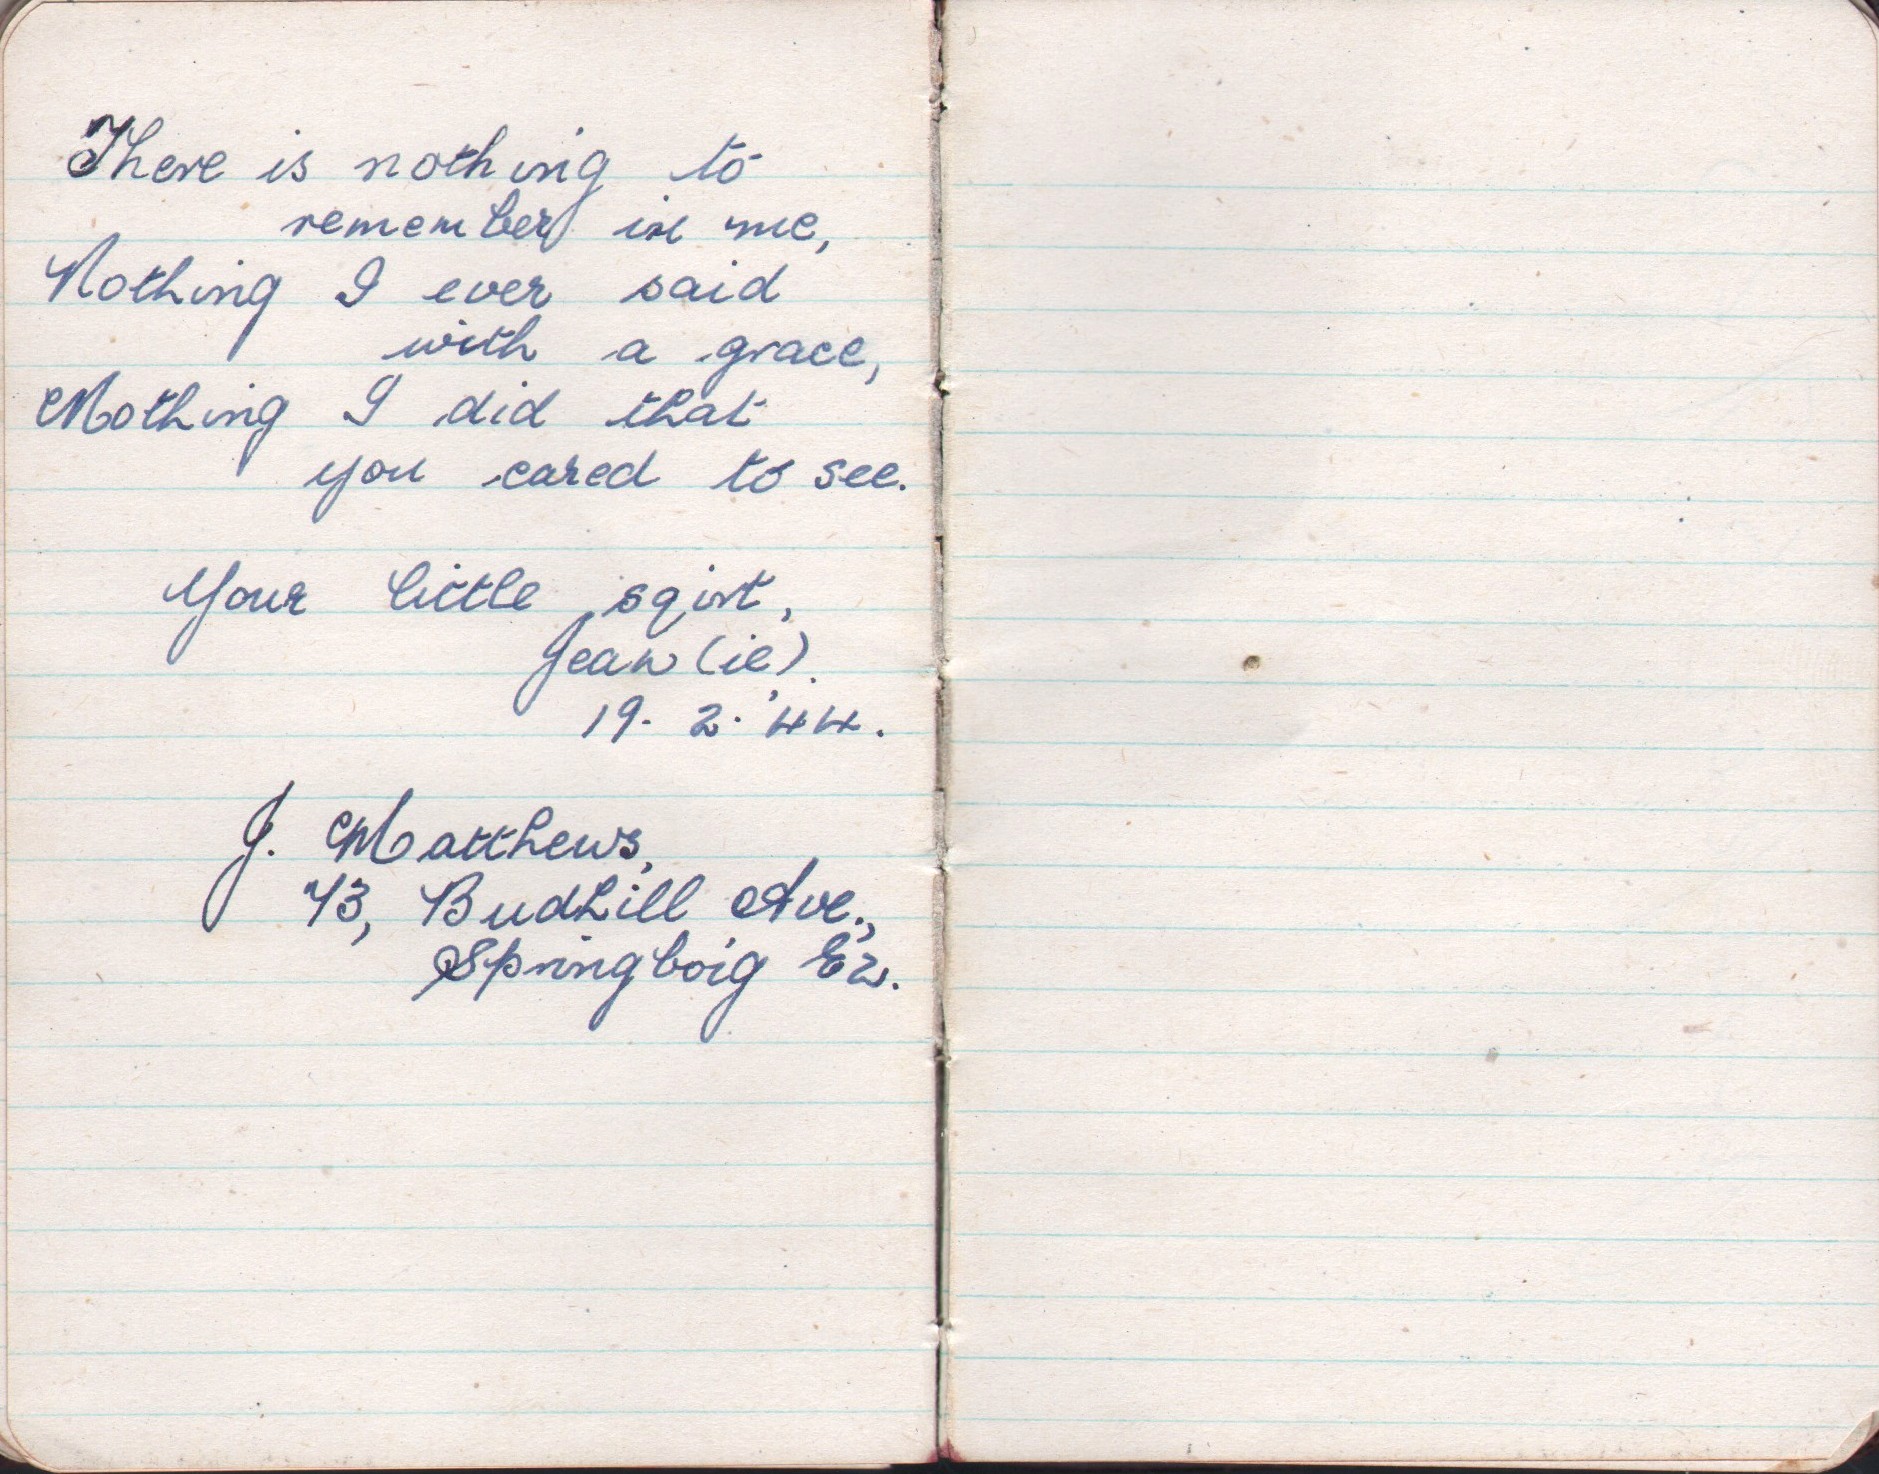 There is nothing to
remember in me,
Nothing I ever said
with a grace,
Nothing I did that
you cared to see.
Your little sqirt,
Jean (ie).
19. 2. '44.
J. Matthews,
73, Budhill Ave.,
Springboig E2.